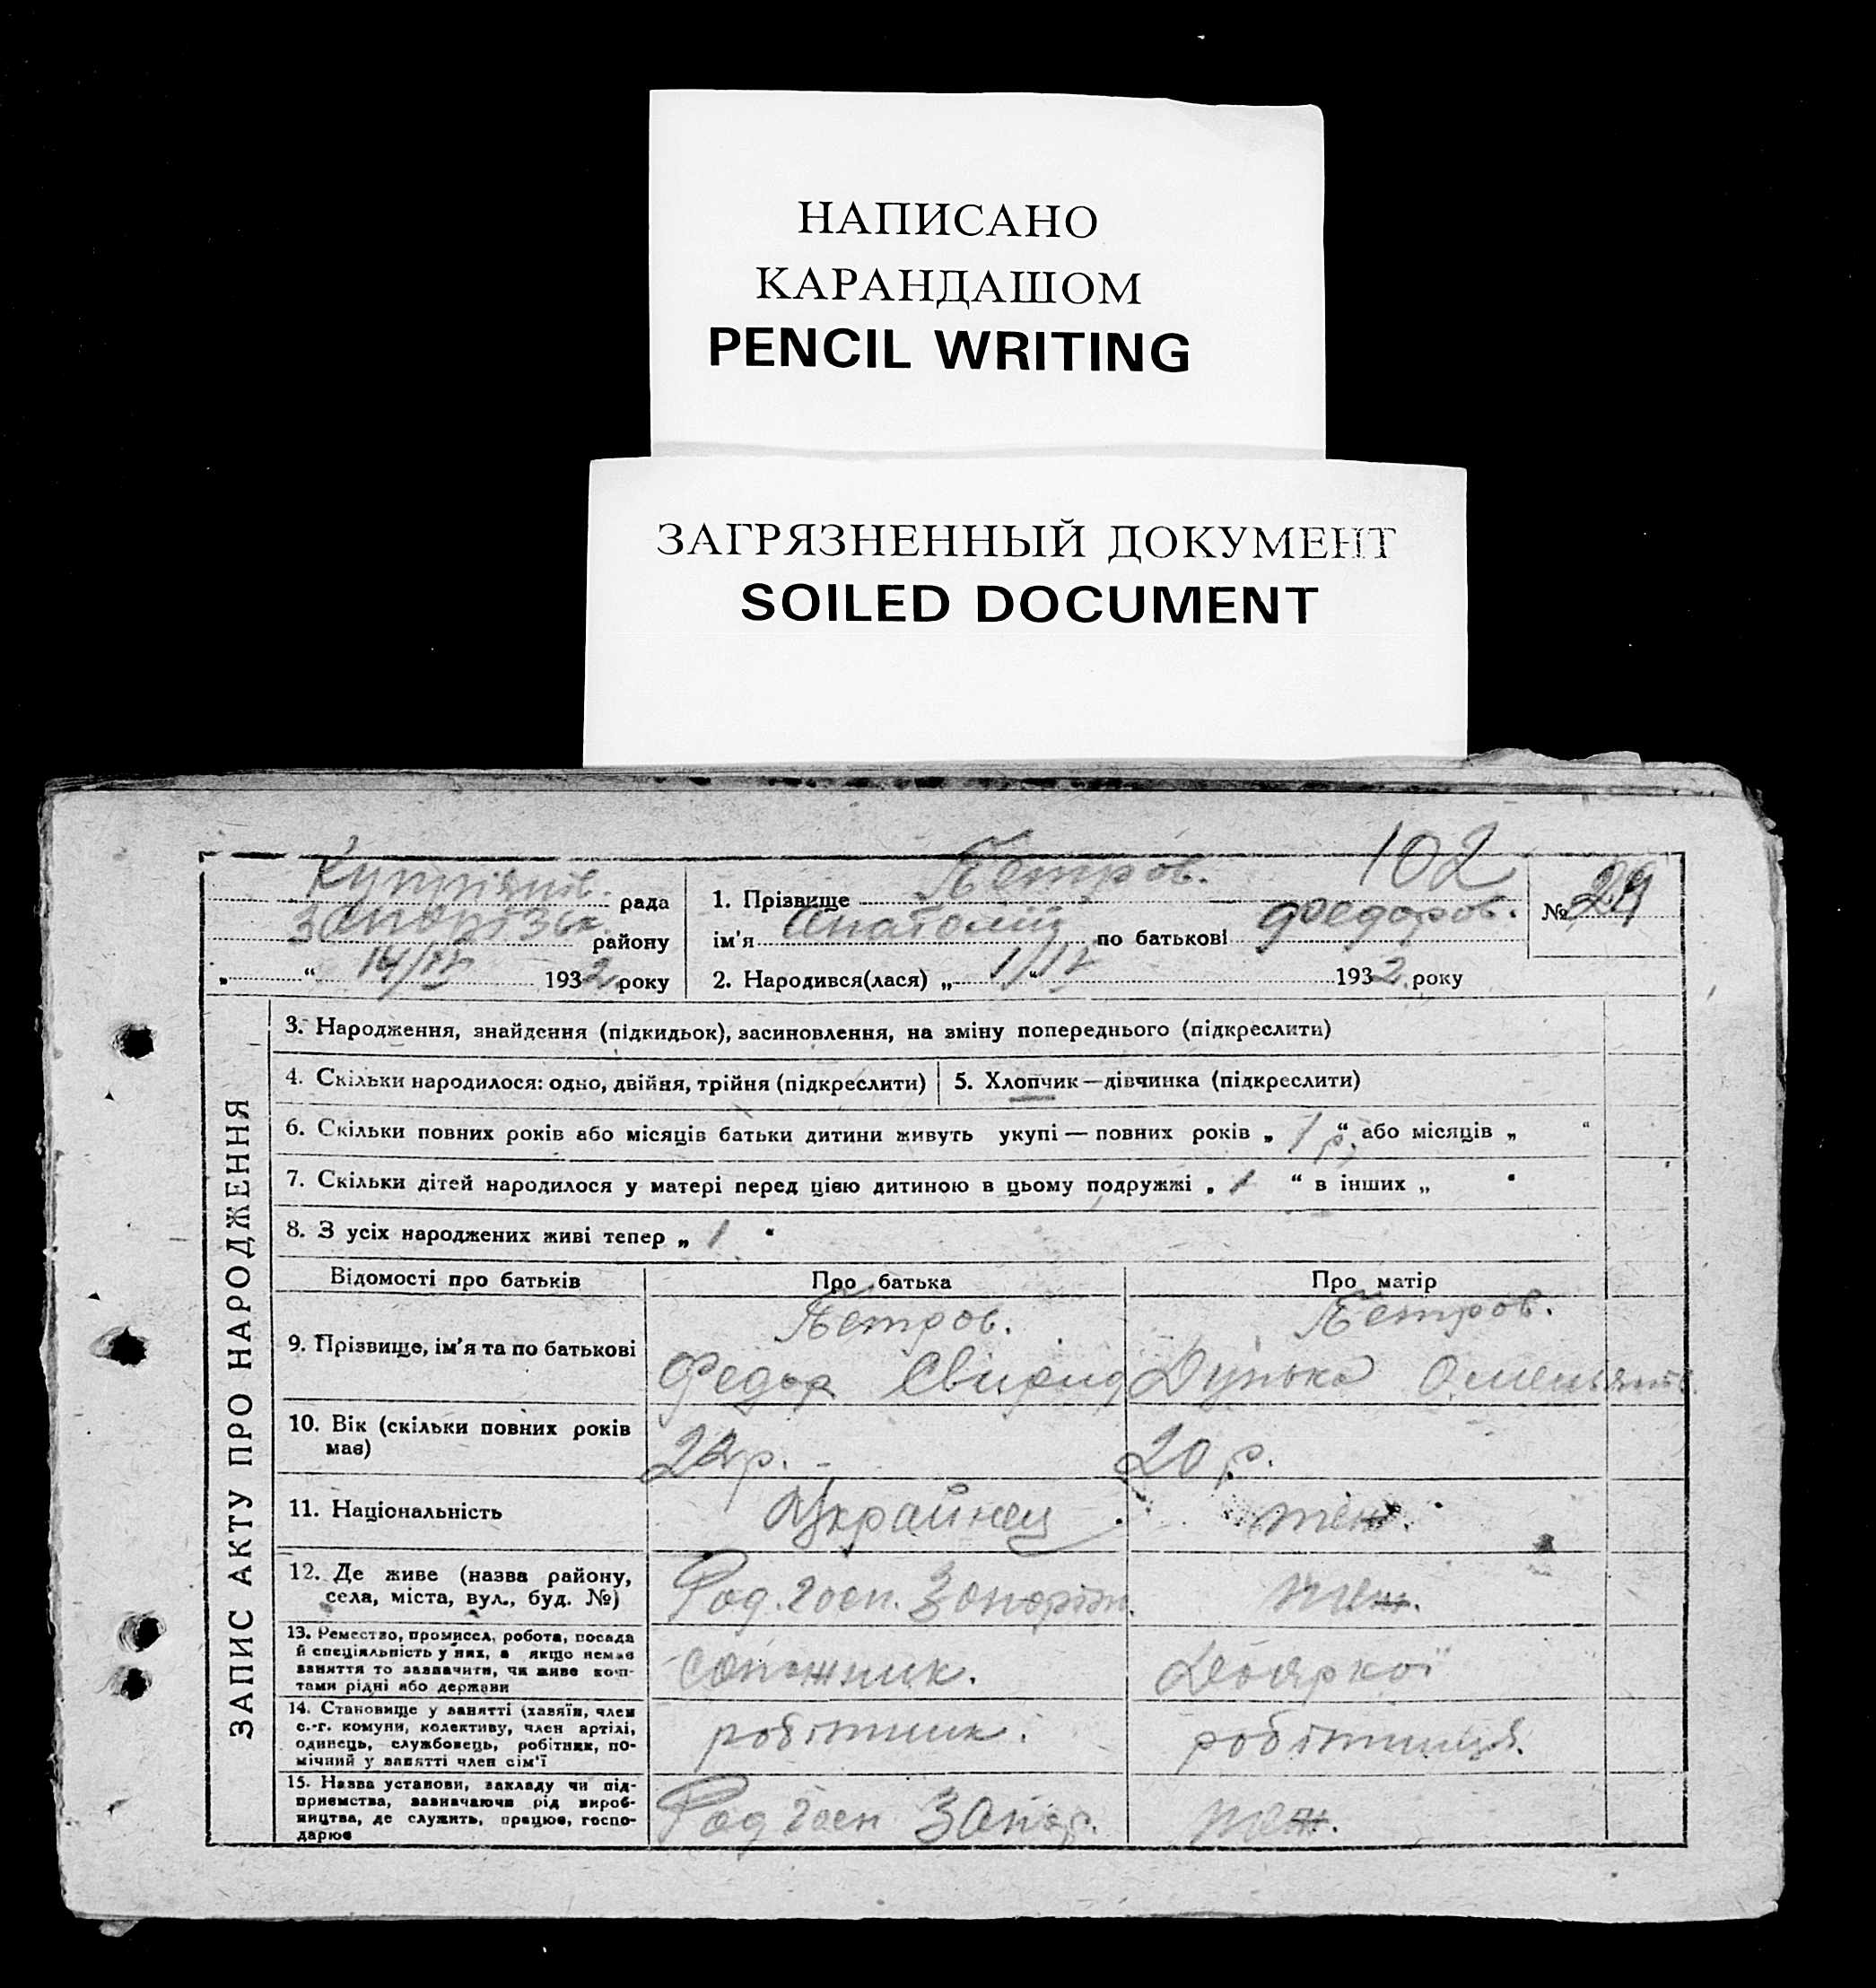 НАПИСАНО
КАРАНДАШОМ
PENCIL WRITING
ЗАГРЯЗНЕННЫЙ ДОКУМЕНТ
SOILED DOCUMENT
102
рада
району
14/IV 1932 року
1. Прізвище Петров.
ім'я Анатолій по батькові Федоров.
2. Народився(лася) „ 1/IV “ 1932 року
№ 29
ЗАПИС АКТУ ПРО НАРОДЖЕННЯ
3. Народження, знайдення (підкидьок), засиновлення, на зміну попереднього (підкреслити)
4. Скільки народилося: одно, двійня, трійня (підкреслити)
5. Хлопчик—дівчинка (підкреслити)
6. Скільки повних років або місяців батьки дитини живуть укупі — повних років „ 1 р. “ або місяців „ “
7. Скільки дітей народилося у матері перед цією дитиною в цьому подружжі „ 1 “ в інших „ “
8. З усіх народжених живі тепер „ 1 “
Відомості про батьків
Про батька
Про матір
9. Прізвище, ім'я та по батькові
Петров.
Федор Свирид
Петров.
Дунька
10. Вік (скільки повних років
має)
20 р.
11. Національність
Украйнец
теж.
12. Де живе (назва району,
села, міста, вул., буд. №)
Рад. госп. Запоріж.
теж.
13. Ремество, промисел, робота, посада
й спеціяльність у них, а якщо немає
заняття то зазначити, чи живе кош-
тами рідні або держави
сапожник.
14. Становище у занятті (хазяїн, член
с.-г. комуни, колективу, член артілі,
одинець, службовець, робітник, по-
мічний у занятті член сім'ї
робітник.
робітниця.
15. Назва установи, закладу чи під-
приємства, зазначаючи рід вироб-
ництва, де служить, працює, госпо-
дарює
Рад госп Запор.
теж.